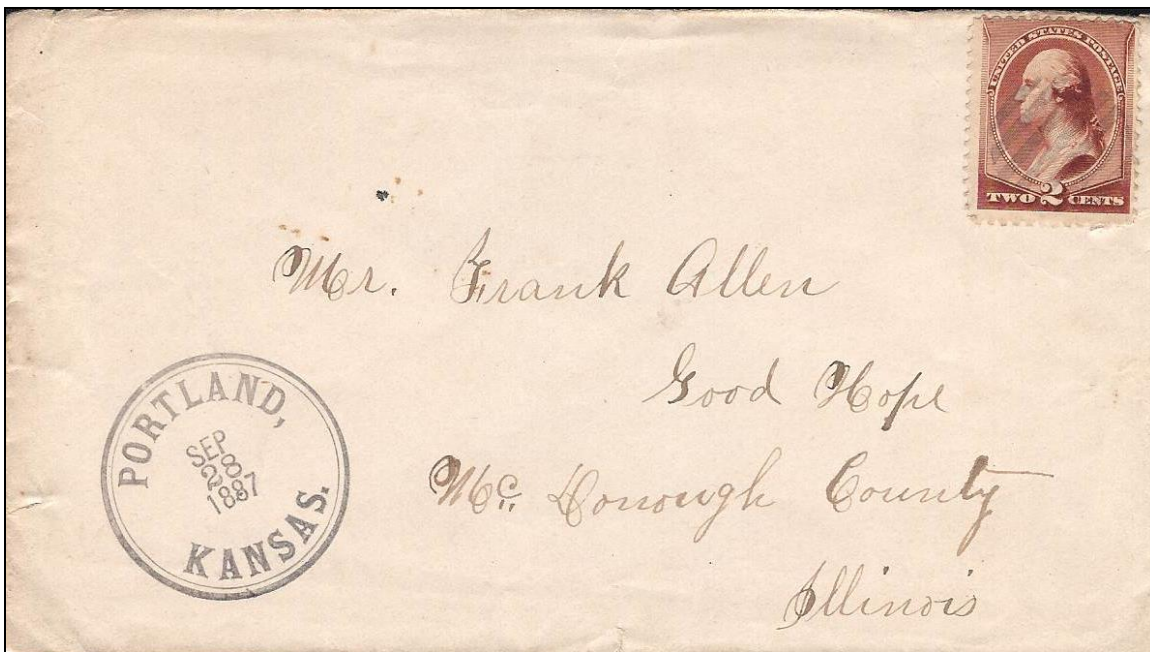 UNITED STATES POSTAGE
TWO 2 CENTS
Mr. Frank Allen
Good Hope
Mc. Donough County
Illinois
PORTLAND,
SEP
28
1887
KANSAS.